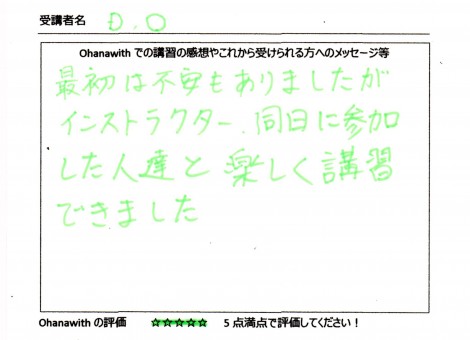 受講者名 D.O
Ohanawith での講習の感想やこれから受けられる方へのメッセージ等
最初は不安もありましたが
インストラクター、同日に参加
した人達と楽しく講習
できました
Ohanawith の評価 ☆☆☆☆☆ 5 点満点で評価してください！